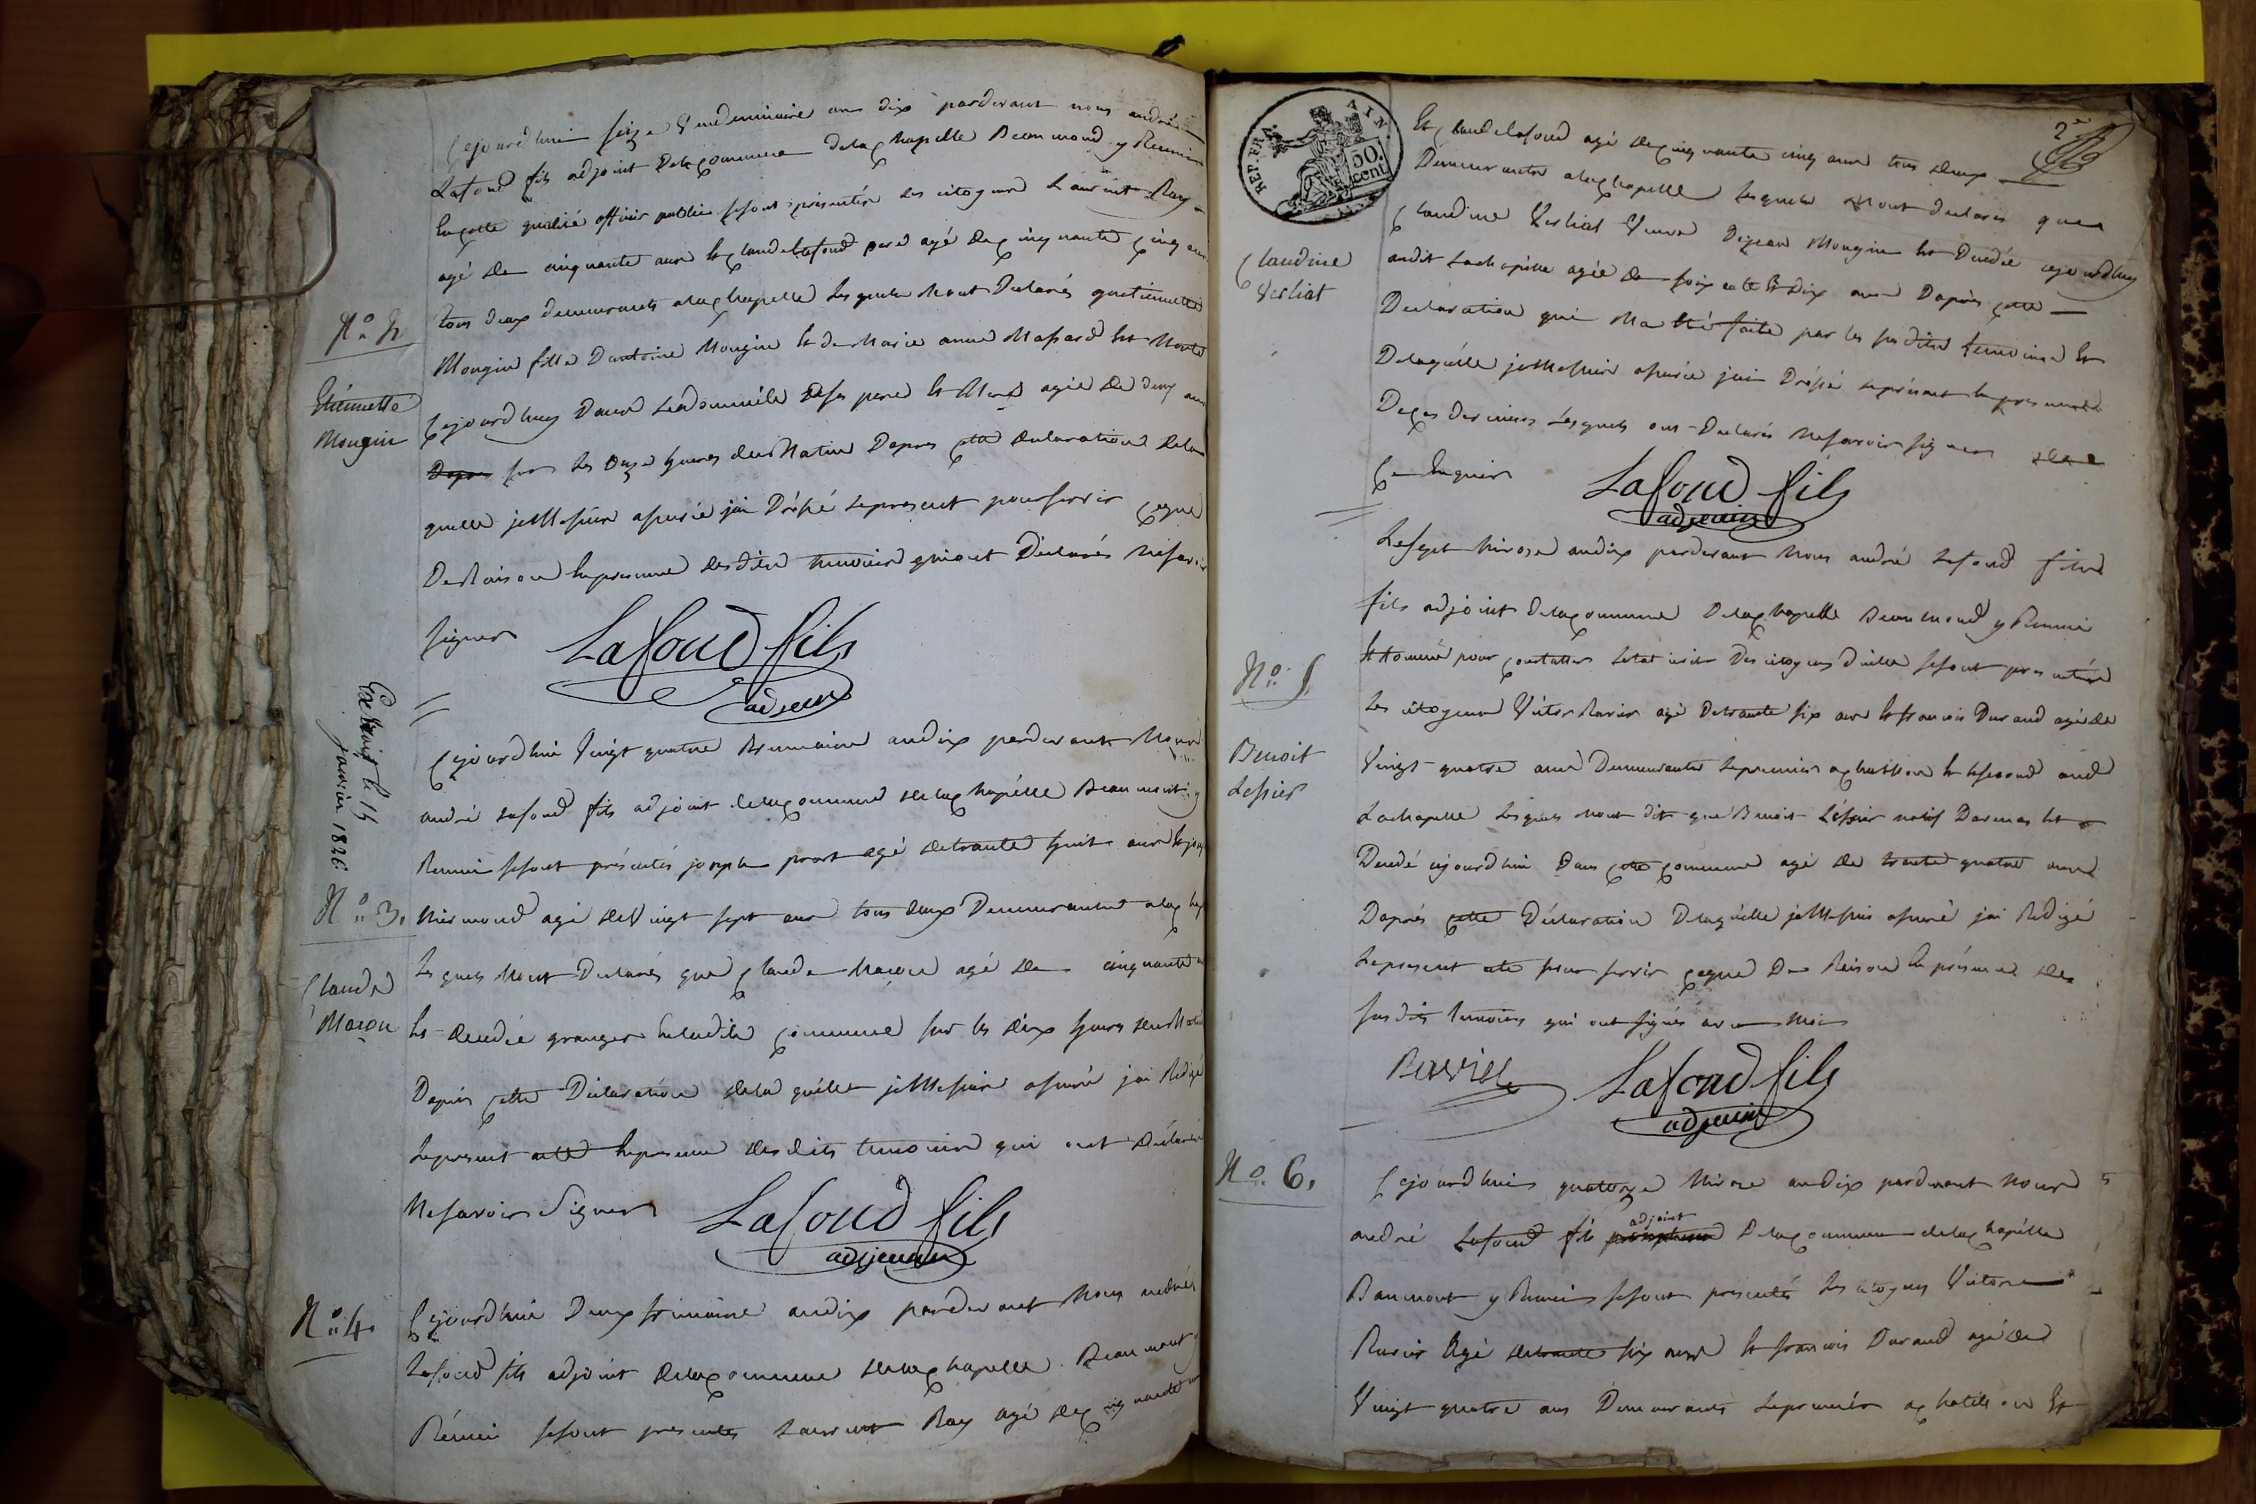 Cejourdhui seize Vendemiaire an dix pardevant nous andré
Lafond fils adjoint dela Commune dela Chapelle Beaumond y Reunie
En cette qualité officier public se sont présentés les citoyens Laurent Ray
agé de cinquante ans et Claude Lafond pere agé de Cinquante Cinq ans
tous deux demeurants ala Chapelle lesquels Mont Declarés quetiennette
Mongin fille Dantoine Mongin et de Marie anne Massard est Morte
Cejourdhuy Dans Ledomicile deses pere et Mere agée de deux ans
Depres sur les Onze heures du Matin Dapres Cette declaration dela
quelle je Me suis assuré jai Drésé le present pour servir Ceque
De Raison En presence desdits temoins qui ont Déclarés Nesavoir
signer
Lafond fils
adjoint
N° 2
Etiennette
Mongin
Extrait le 15
janvier 1826
Cejourdhui Vingt quatre Brumaire an dix pardevant Nous
andré Lafond fils adjoint dela Commune dela Chapelle Beaumont y
Reunie se sont présentés joseph prost agé detrante huit ans et
Miermond agé de Vingt sept ans tous deux Demeurants ala
Lesquels Mont Declarés que Claude Macon agé de cinquante
Est decedé granger en ladite Commune sur les dix heures du Matin
Dapres Cette Déclaration dela quelle je Me suis assuré jai Redigé
Le présent acte En presence desdits temoins qui ont declaré
Ne savoir Signer
Lafond fils
adjoint
N° 3.
Claude
Macon
N° 4.
Cejourdhui Deux frimaire an dix pardevant Nous andré
Lafond fils adjoint dela Commune dela Chapelle Beaumont y
Réunie se sont presentés Laurent Ray agé de Cinquante
REP. FRA. AIN.
50.
cent.
2e
Et Claude Lafond agé de Cinquante cinq ans tous deux
Demeurants ala Chapelle Lesquels Mont declarés que
Claudine Verliat Veuve De jean Mongin est Decedée cejourdhuy
audit Lachapelle agée de soixante et Dix ans Dapres Cette
Declaration qui Ma été faite par les susdits temoins Et
Delaquelle je Me suis assuré jai Drésé le présent En presence
De Ces derniers Lesquels ont Declarés Ne savoir signer de
Ce Enquis
Lafond fils
adjoint
Claudine
Verliat
Le sept Nivose an dix pardevant Nous andré Lafond fils
fils adjoint dela Commune Dela Chapelle Beaumond y Reunie
Et Nommé pour Constater Letat civil Des citoyens Dicelle se sont presentés
Les citoyens Victor Ravier agé Detrante six ans et francois Durand agé de
Vingt quatre ans Demeurants Le premier a Chatillon et le second aud
Lachapelle Lesquels Mont dit que Benoit Lessier natif Darmas Est
Decedé cejourdhui Dans Cette Commune agé de trante quatre ans
Daprés Cette Déclaration Delaquelle je Me suis assuré jai Redigé
Le present acte pour servir Ceque De Raison En présence des
susdits temoins qui ont signés avec Moi
Ravier
Lafond fils
adjoint
N° 5
Benoit
Lessier
N° 6.
Cejourdhui quatorze Nivose an dix pardevant Nous
andré Lafond fils adjoint Dela Commune dela Chapelle
Baumont y Reunie se sont presentés Les citoyens Victor
Ravier Agé detrante six ans Et francois Durand agé de
Vingt quatre ans Demeurants Le premier a Chatillon Et